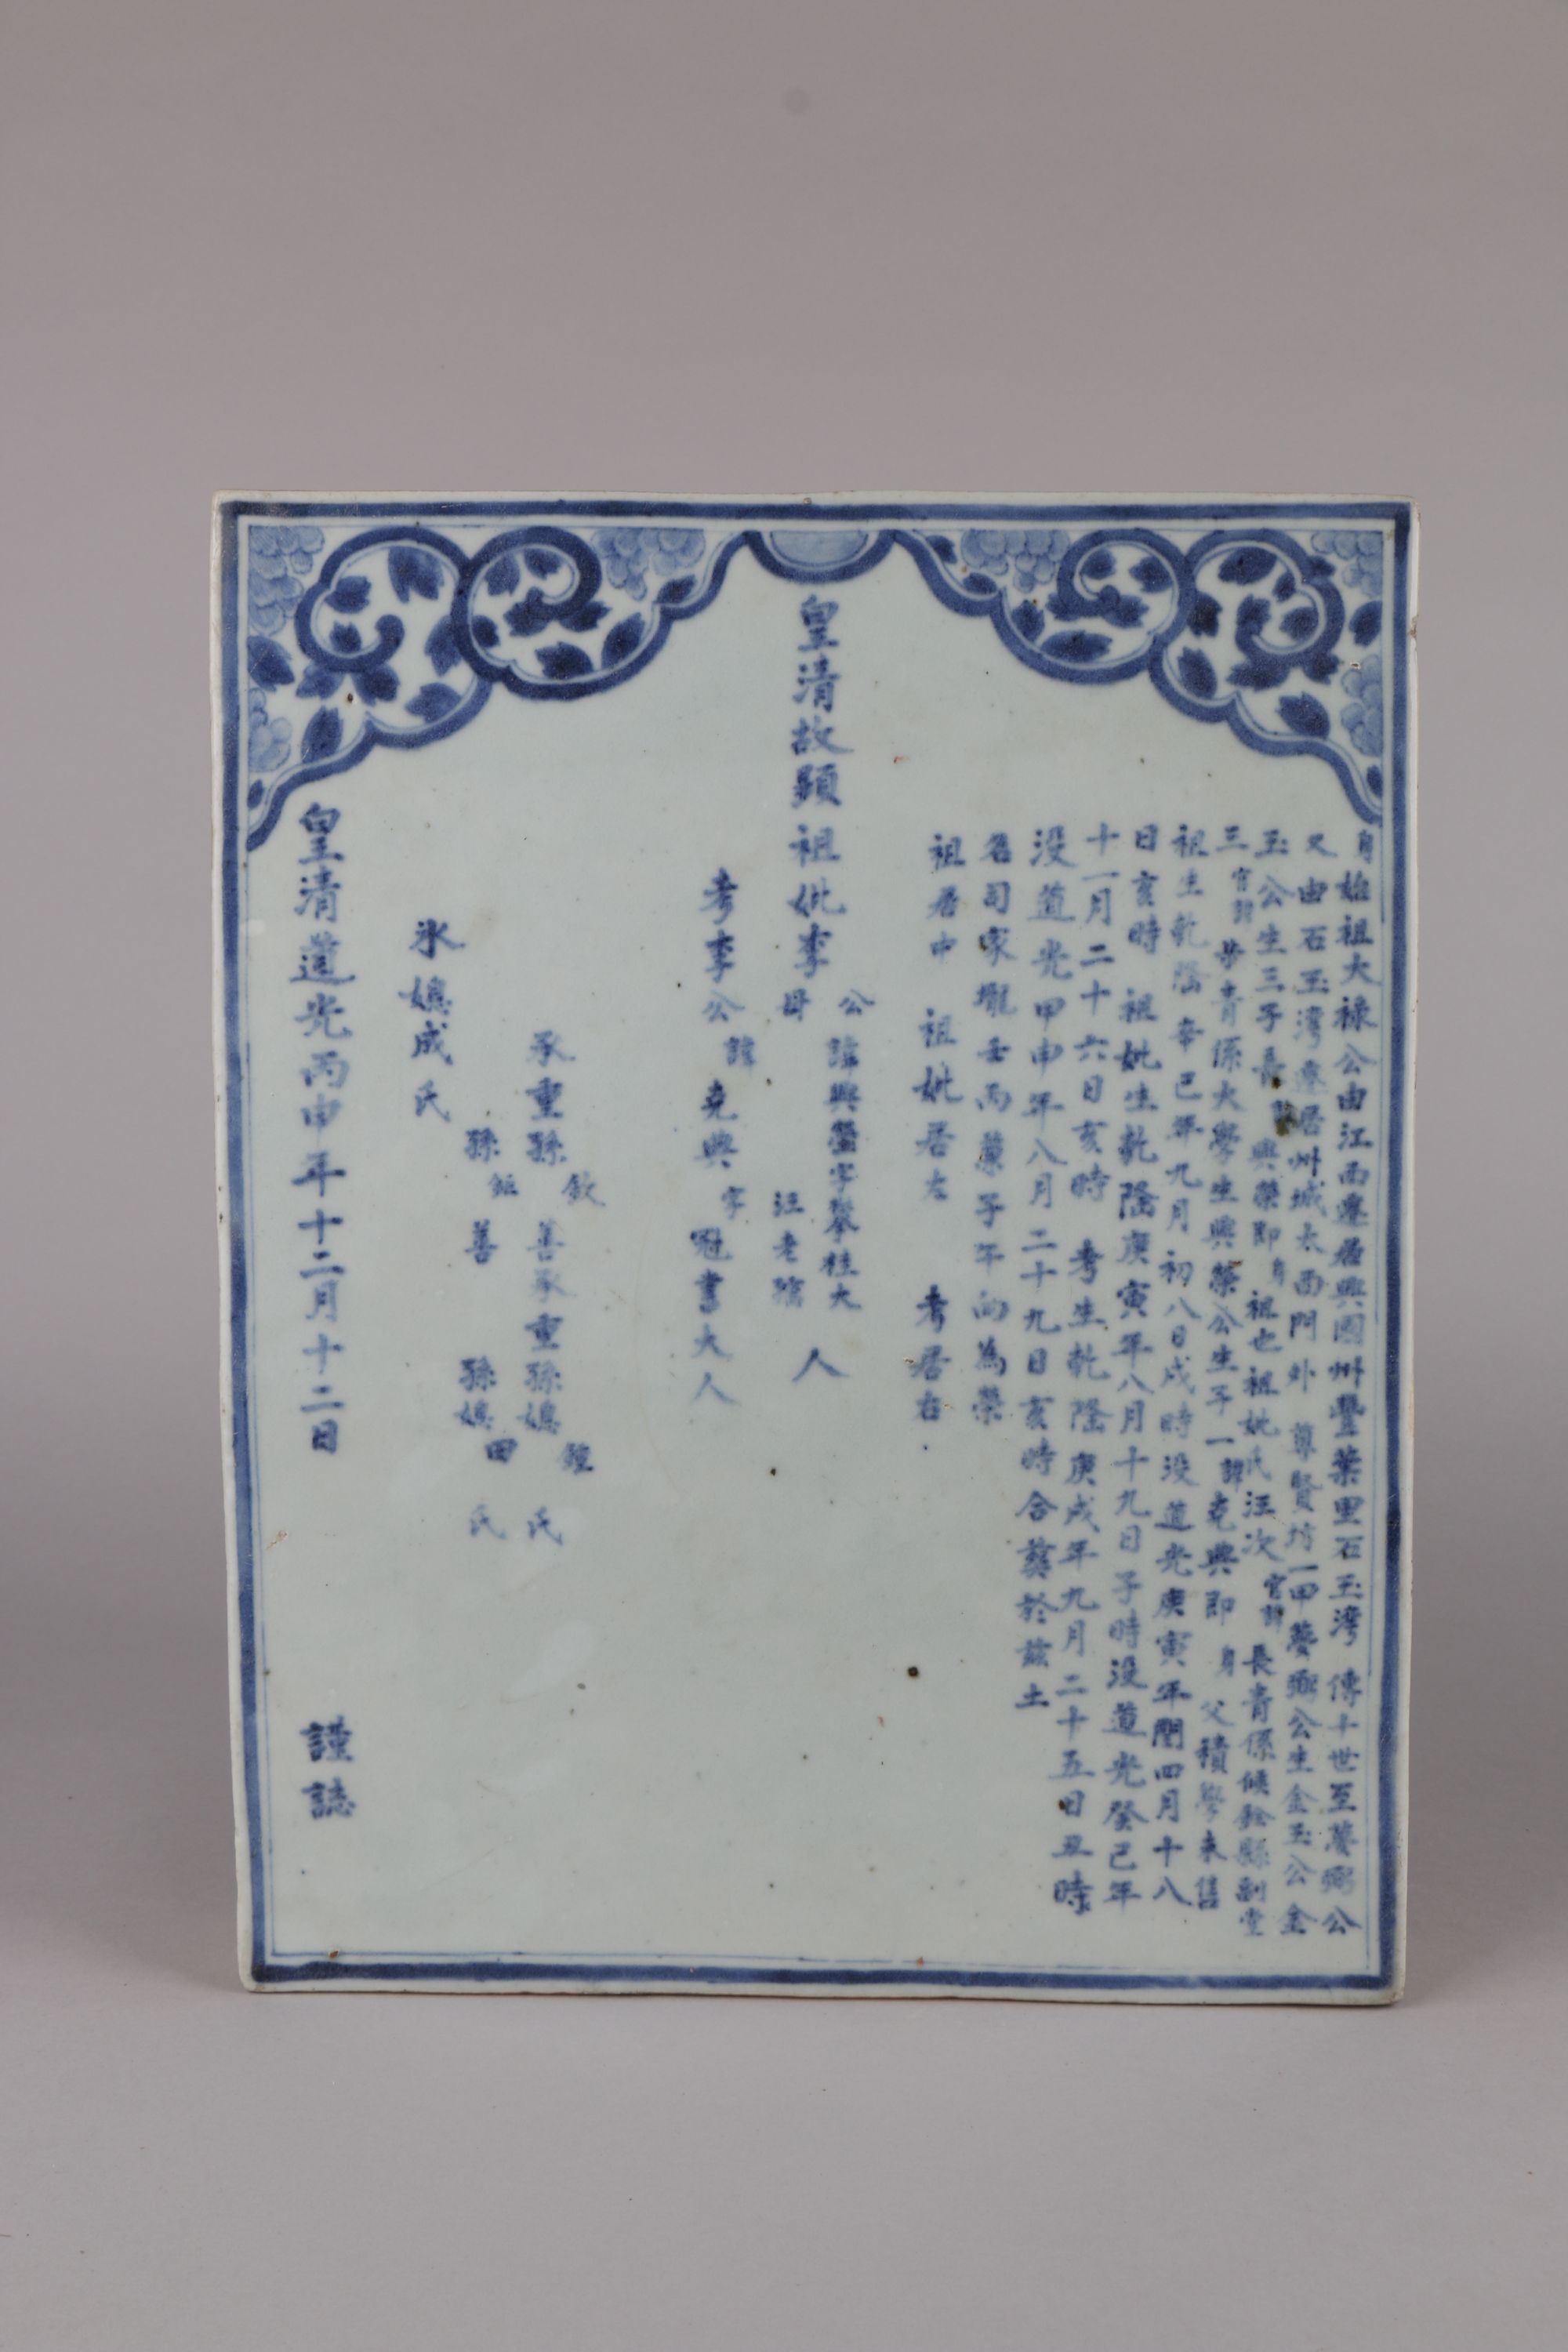 身始祖大祿公由江西遷居興國州豐葉里石玉灣傳十世至夢弼公
又由石玉灣遷居州城大西門外尊賢坊一甲夢弼公生金玉公金
玉公生三子長諱興榮即身祖也祖妣氏汪次官諱長青係候銓縣副堂
三官諱步青係大學生興榮公生子一諱克典即身父積學未售
祖生乾隆辛巳年九月初八日戌時没道光庚寅年閏四月十八
日亥時祖妣生乾隆庚寅年八月十九日子時没道光癸巳年
十一月二十六日亥時考生乾隆庚戌年九月二十五日丑時
没道光甲申年八月二十九日亥時合葬於兹土
名司家壠壬丙兼子午向為塋
祖居中祖妣居左考居右
皇清故顯祖妣李公諱興榮字攀桂大人
母汪老孺人
考李公諱克典字冠書大人
承重孫欽善承重孫媳鍾氏
孫鉅善孫媳田氏
氷媳成氏
皇清道光丙申年十二月十二日謹誌